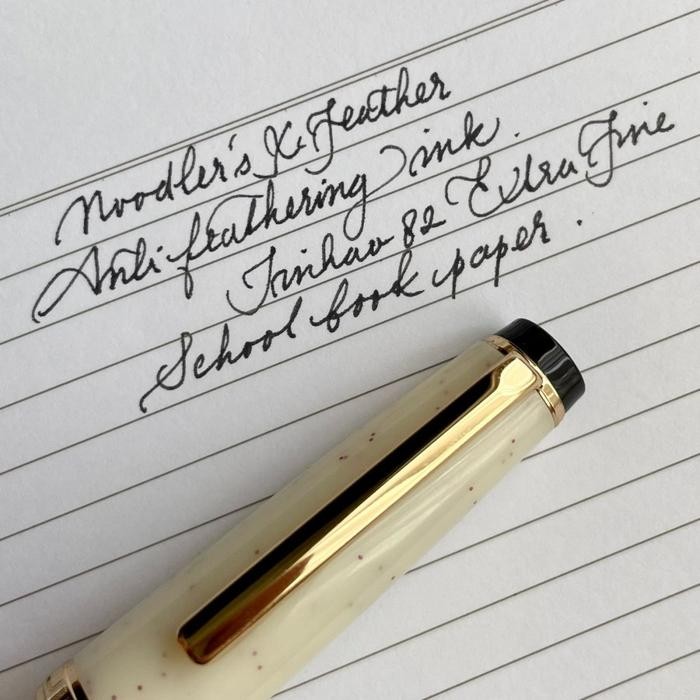 Noodler's X-Feather
Anti feathering ink.
Jinhao 82 Extra Fine
School book paper.